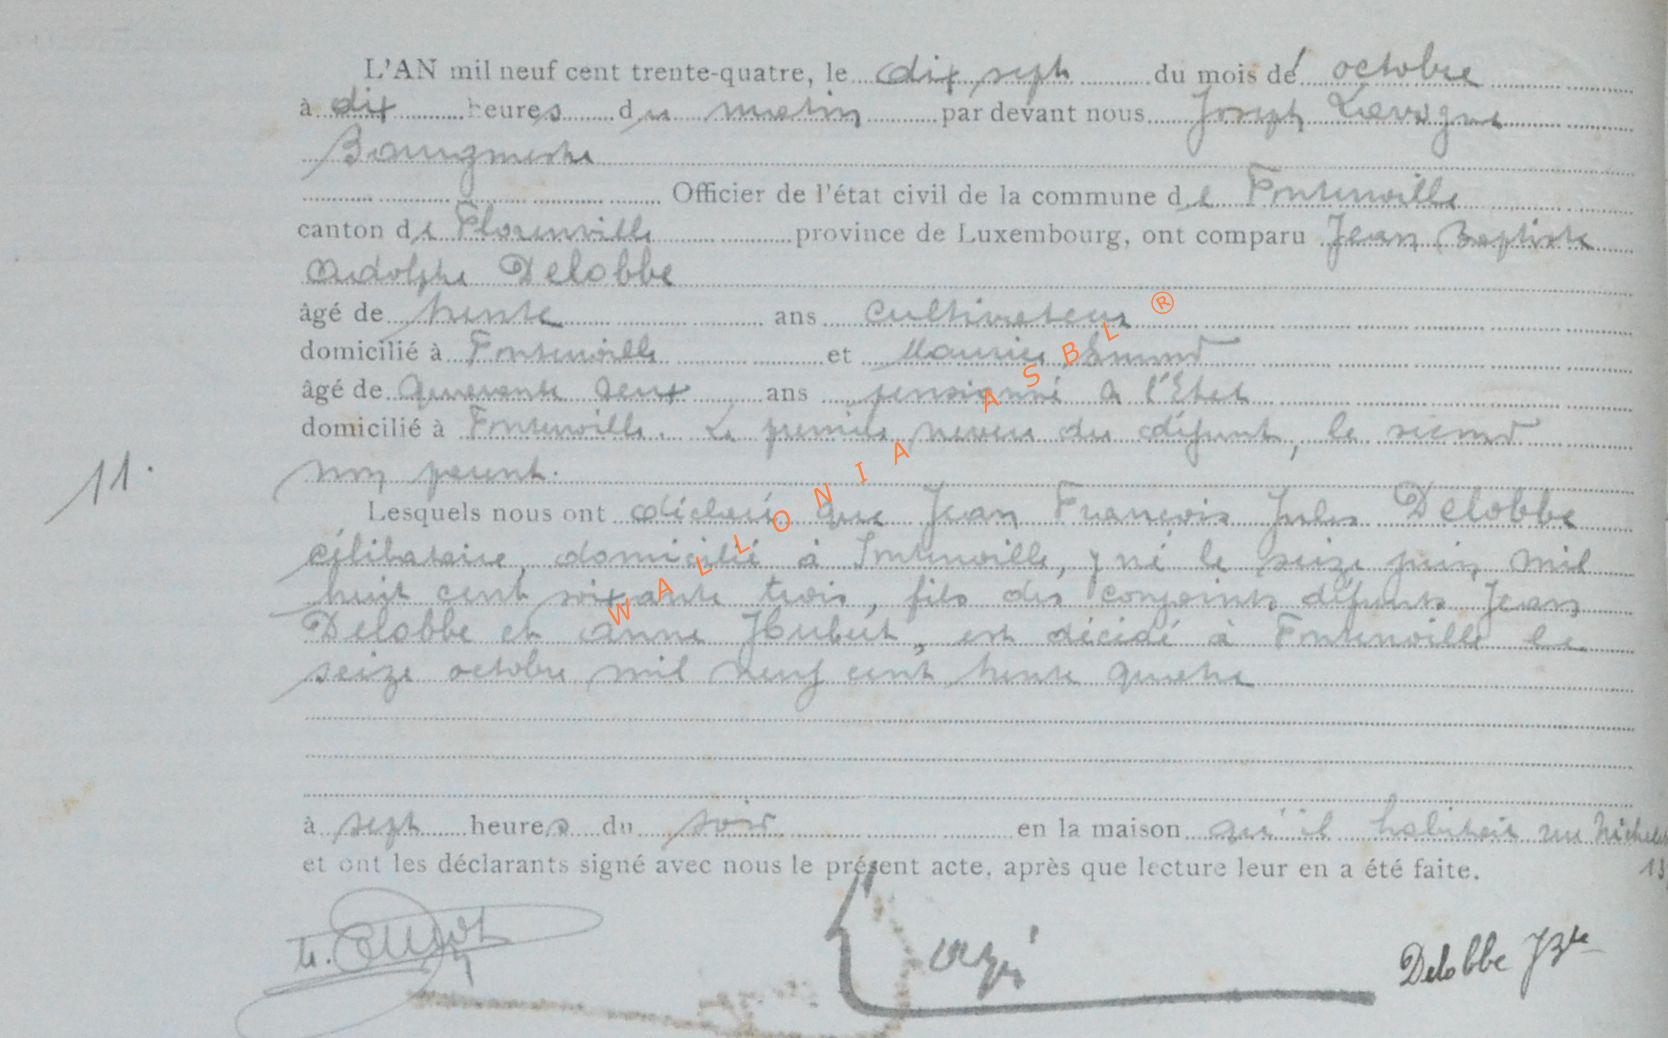 L'AN mil neuf cent trente-quatre, le dix sept du mois de octobre
à dix heures du matin par devant nous Joseph
Bourgmestre
Officier de l'état civil de la commune de Fontenoille
canton de Florenville province de Luxembourg, ont comparu Jean Baptiste
Adolphe Delobbe
âgé de trente ans cultivateur
domicilié à Fontenoille et Maurice
âgé de quarante deux ans pensionné de l'Etat
domicilié à Fontenoille. Le premier neveu du défunt, le second
non parent.
11.
Lesquels nous ont déclaré que Jean François Jules Delobbe
célibataire, domicilié à Fontenoille, y né le seize juin mil
huit cent soixante trois, fils des conjoints défunts Jean
Delobbe et Anne Hubert, est décédé à Fontenoille le
seize octobre mil neuf cent trente quatre
à sept heures du soir en la maison qu'il habitait rue
et ont les déclarants signé avec nous le présent acte, après que lecture leur en a été faite.
Delobbe JBte
WALLONIA ASBL ®